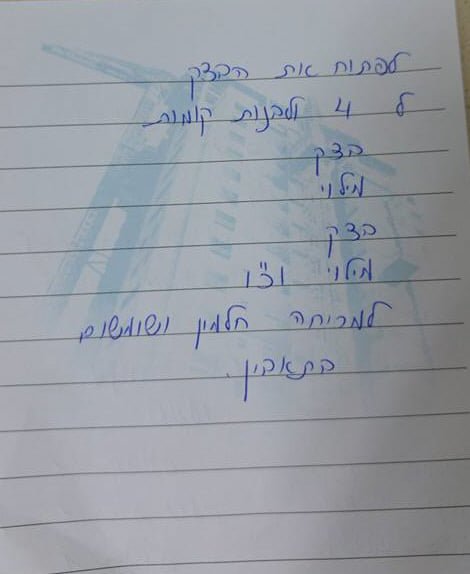 לפתוח את הבצק
ל 4 ולבנות קומות
בצק
מילוי
בצק
מילוי וכ"ו
למריחה חלמון ושומשום
בתאבון.